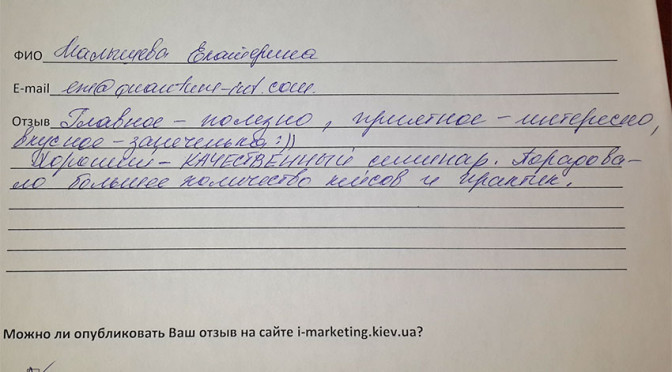 ФИО Малышева Екатерина
E-mail
Отзыв Главное – полезно, приятное – интересно,
вкусное – запеченька :))
Хороший – КАЧЕСТВЕННЫЙ семинар. Порадова-
ло большое количество кейсов и практик.
Можно ли опубликовать Ваш отзыв на сайте i-marketing.kiev.ua?